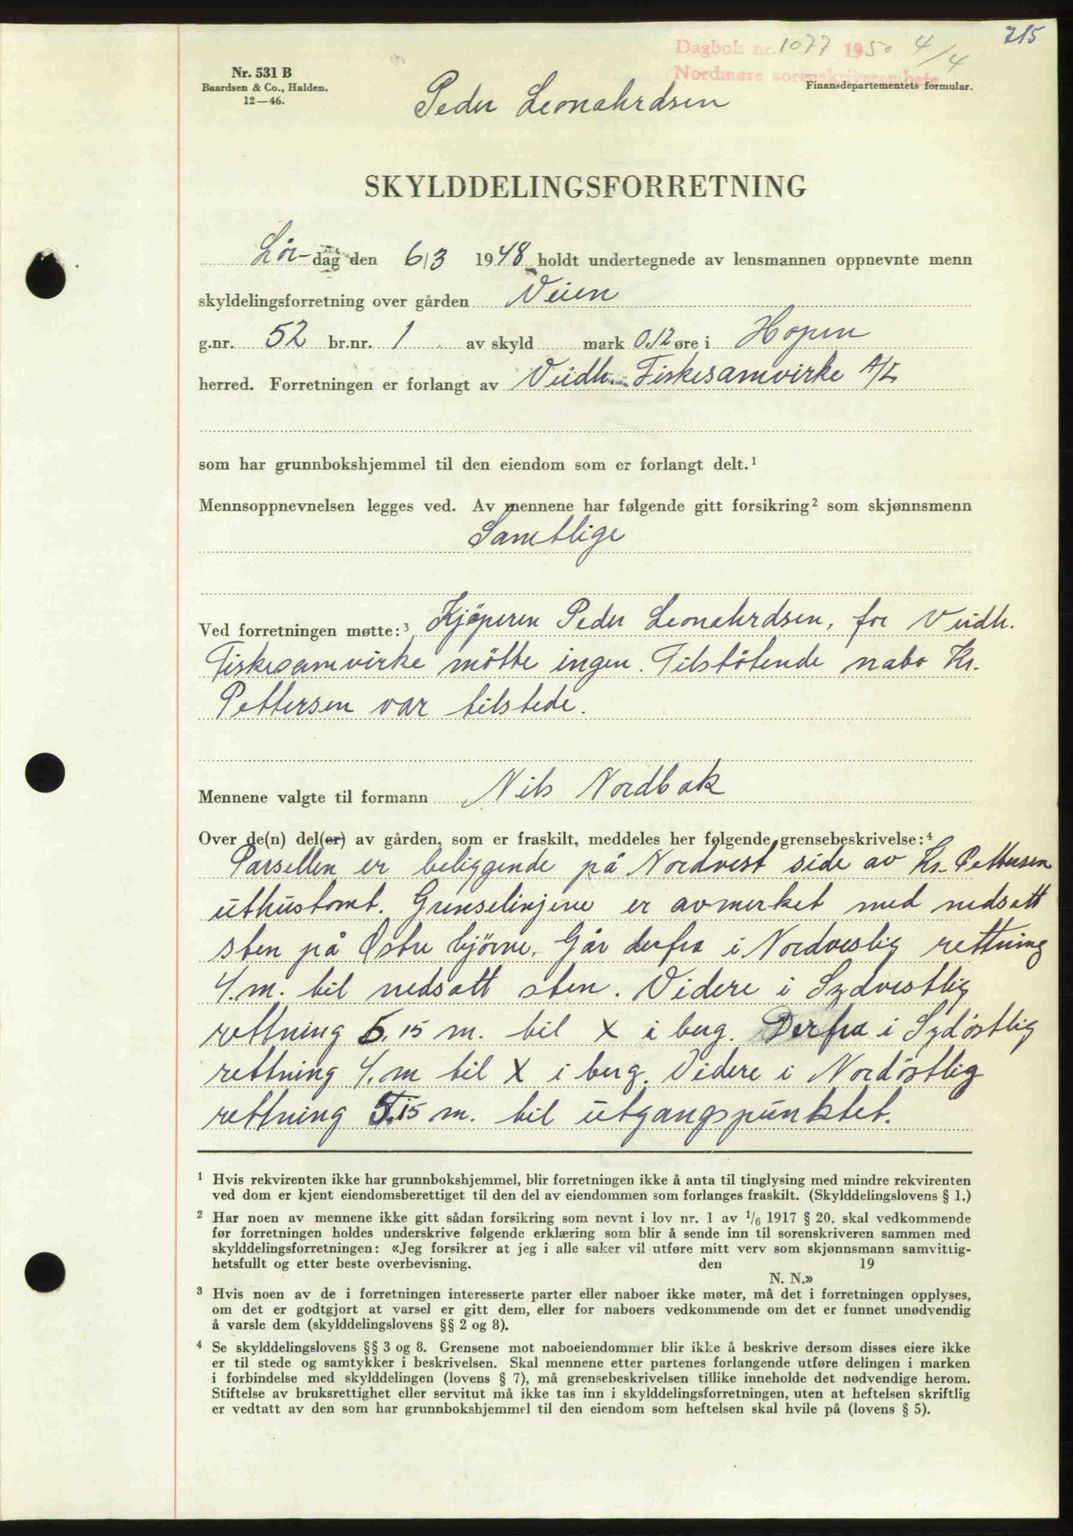 715
Dagbok nr. 1077 1950 4/4
Nordmøre sorenskriverembete
Nr. 531 B
Baardsen & Co., Halden.
12—46.
Finansdepartementets formular.
Peder Leonahrdsen
SKYLDDELINGSFORRETNING
Lør-dag den 6/3 1948 holdt undertegnede av lensmannen oppnevnte menn
skyldelingsforretning over gården Veien
g.nr. 52 br.nr. 1 av skyld mark 0.12 øre i Hopen
herred. Forretningen er forlangt av Veidh. Fiskesamvirke A/L
som har grunnbokshjemmel til den eiendom som er forlangt delt.¹
Mennsoppnevnelsen legges ved. Av mennene har følgende gitt forsikring² som skjønnsmenn
Samtlige
Ved forretningen møtte:³ Kjöperen Peder Leonahrdsen, for Veidh.
Fiskesamvirke mötte ingen. Tilstötende nabo Kr.
Pettersen var tilstede.
Mennene valgte til formann Nils Nordbak
Over de(n) del(er) av gården, som er fraskilt, meddeles her følgende grensebeskrivelse:⁴
Parsellen er beliggende på Nordvest side av Kr. Pettersen
uthustomt. Grenselinjene er avmerket med nedsatt
sten på Østre hjörne. Går derfra i Nordvestlig rettning
4.m. til nedsatt sten. Videre i Sydvestlig
rettning 5.15 m. til X i berg. Derfra i Sydöstlig
rettning 4.m til X i berg. Videre i Nordöstlig
rettning 5.15 m. til utgangspunktet.
¹ Hvis rekvirenten ikke har grunnbokshjemmel, blir forretningen ikke å anta til tinglysing med mindre rekvirenten
ved dom er kjent eiendomsberettiget til den del av eiendommen som forlanges fraskilt. (Skylddelingslovens § 1.)
² Har noen av mennene ikke gitt sådan forsikring som nevnt i lov nr. 1 av 1/6 1917 § 20, skal vedkommende
før forretningen holdes underskrive følgende erklæring som blir å sende inn til sorenskriveren sammen med
skylddelingsforretningen: «Jeg forsikrer at jeg i alle saker vil utføre mitt verv som skjønnsmann samvittig-
hetsfullt og etter beste overbevisning. den 19
N. N.»
³ Hvis noen av de i forretningen interesserte parter eller naboer ikke møter, må det i forretningen opplyses,
om det er godtgjort at varsel er gitt dem, eller for naboers vedkommende om det er funnet unødvendig
å varsle dem (skylddelingslovens §§ 2 og 8).
⁴ Se skylddelingslovens §§ 3 og 8. Grensene mot naboeiendommer blir ikke å beskrive dersom disses eiere ikke
er til stede og samtykker i beskrivelsen. Skal mennene etter partenes forlangende utføre delingen i marken
i forbindelse med skylddelingen (lovens § 7), må grensebeskrivelsen tillike inneholde det nødvendige herom.
Stiftelse av bruksrettighet eller servitut må ikke tas inn i skylddelingsforretningen, uten at heftelsen skriftlig
er vedtatt av den som har grunnbokshjemmel til den eiendom som heftelsen skal hvile på (lovens § 5).